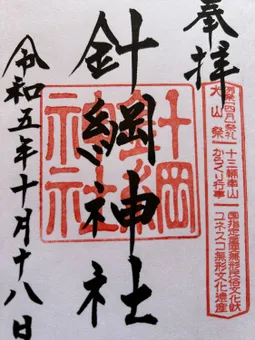 奉拝
針綱神社
令和五年十月十八日
針綱神社
犬山祭
十三輌車山
からくり行事
国指定重要無形民俗文化財
ユネスコ無形文化遺産